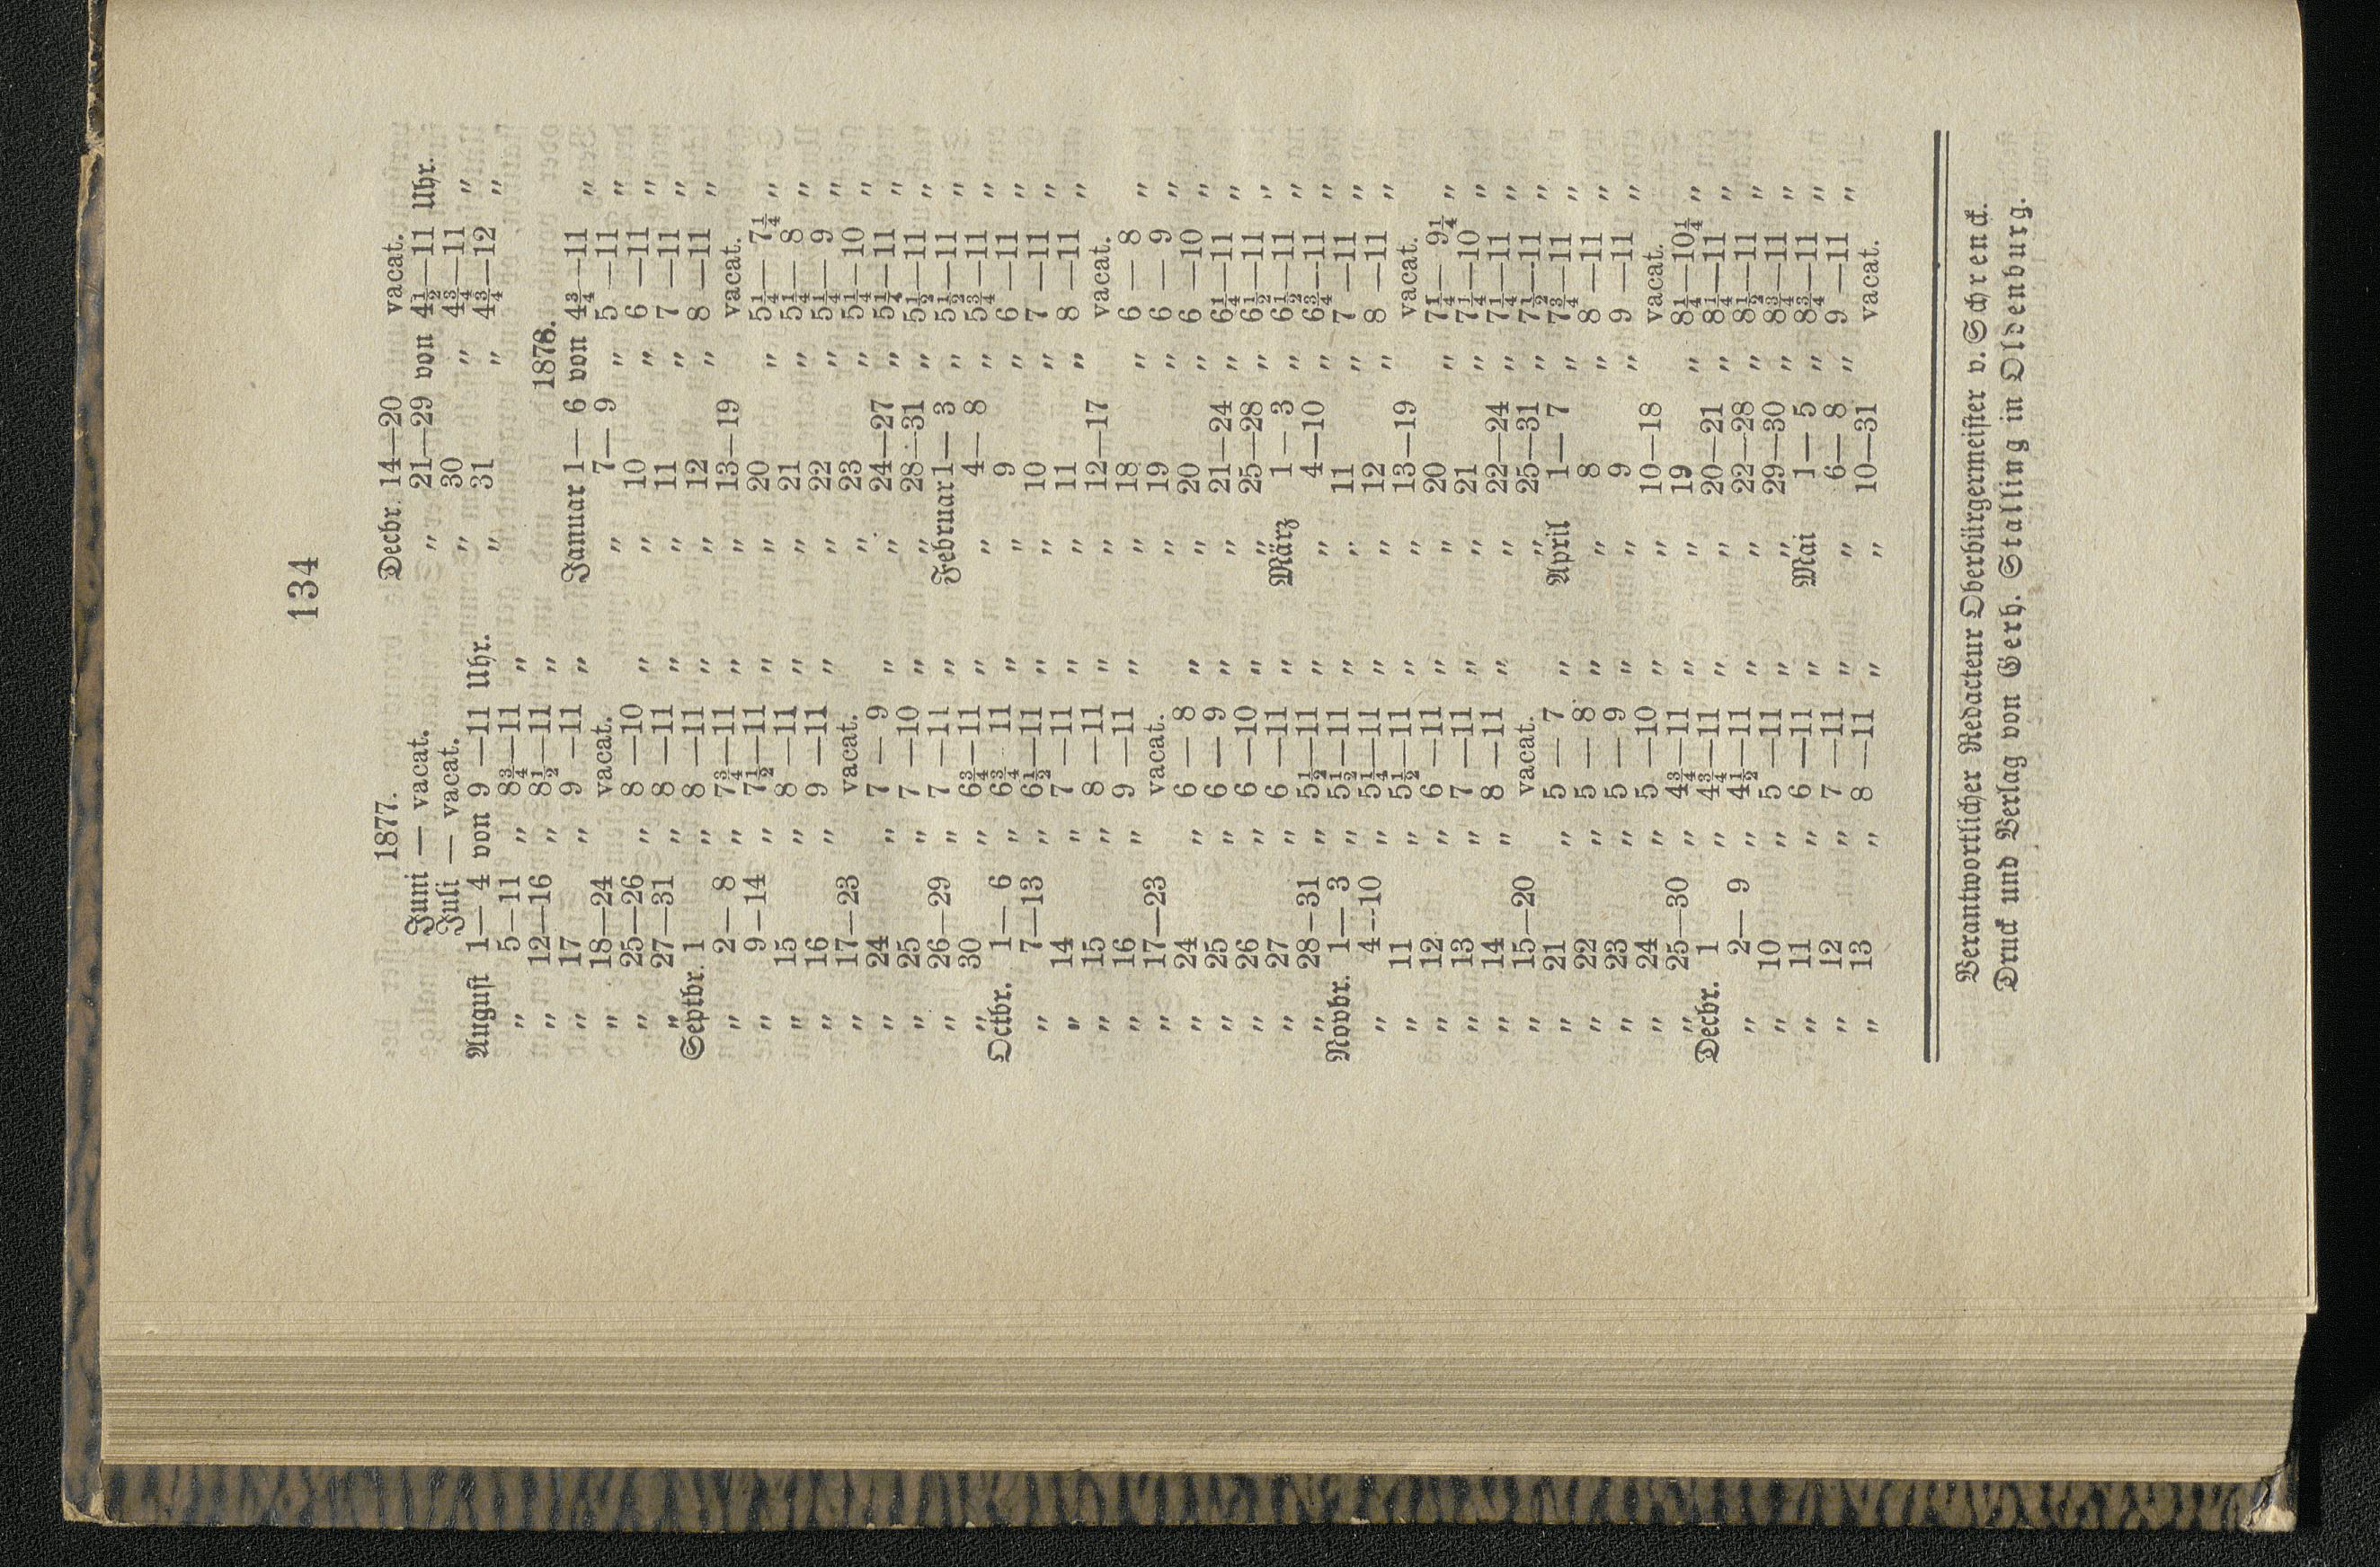 134
1877.
Juni — vacat.
Juli — vacat.
August 1— 4 von 9 —11 Uhr.
„ 5—11 „ 8¾—11 „
„ 12—16 „ 8½—11 „
„ 17 „ 9 —11 „
„ 18—24 vacat.
„ 25—26 „ 8 —10 „
„ 27—31 „ 8 —11 „
Septbr. 1 „ 8 —11 „
„ 2— 8 „ 7¾—11 „
„ 9—14 „ 7½—11 „
„ 15 „ 8 —11 „
„ 16 „ 9 —11 „
„ 17—23 vacat.
„ 24 „ 7 — 9 „
„ 25 „ 7 —10 „
„ 26—29 „ 7 —11 „
„ 30 „ 6¾—11 „
Octbr. 1— 6 „ 6¾ 11 „
„ 7—13 „ 6½—11 „
„ 14 „ 7 —11 „
„ 15 „ 8 —11 „
„ 16 „ 9 —11 „
„ 17—23 vacat.
„ 24 „ 6 — 8 „
„ 25 „ 6 — 9 „
„ 26 „ 6 —10 „
„ 27 „ 6 —11 „
„ 28—31 „ 5½—11 „
Novbr. 1— 3 „ 5½—11 „
„ 4—10 „ 5¼—11 „
„ 11 „ 5½—11 „
„ 12 „ 6 —11 „
„ 13 „ 7 —11 „
„ 14 „ 8 —11 „
„ 15—20 vacat.
„ 21 „ 5 — 7 „
„ 22 „ 5 — 8 „
„ 23 „ 5 — 9 „
„ 24 „ 5 —10 „
„ 25—30 „ 4¾—11 „
Decbr. 1 „ 4¾—11 „
„ 2— 9 „ 4½—11 „
„ 10 „ 5 —11 „
„ 11 „ 6 —11 „
„ 12 „ 7 —11 „
„ 13 „ 8 —11 „
Decbr. 14—20 vacat.
„ 21—29 von 4½—11 Uhr.
„ 30 „ 4¾—11 „
„ 31 „ 4¾—12 „
1878.
Januar 1— 6 von 4¾—11 „
„ 7— 9 „ 5 —11 „
„ 10 „ 6 —11 „
„ 11 „ 7 —11 „
„ 12 „ 8 —11 „
„ 13—19 vacat.
„ 20 „ 5¼— 7¼ „
„ 21 „ 5¼— 8 „
„ 22 „ 5¼— 9 „
„ 23 „ 5¼—10 „
„ 24—27 „ 5¼—11 „
„ 28—31 „ 5½—11 „
Februar 1— 3 „ 5½—11 „
„ 4— 8 „ 5¾—11 „
„ 9 „ 6 —11 „
„ 10 „ 7 —11 „
„ 11 „ 8 —11 „
„ 12—17 vacat.
„ 18 „ 6 — 8 „
„ 19 „ 6 — 9 „
„ 20 „ 6 —10 „
„ 21—24 „ 6¼—11 „
„ 25—28 „ 6½—11 „
März 1— 3 „ 6½—11 „
„ 4—10 „ 6¾—11 „
„ 11 „ 7 —11 „
„ 12 „ 8 —11 „
„ 13—19 vacat.
„ 20 „ 7¼— 9¼ „
„ 21 „ 7¼—10 „
„ 22—24 „ 7¼—11 „
„ 25—31 „ 7½—11 „
April 1— 7 „ 7¾—11 „
„ 8 „ 8 —11 „
„ 9 „ 9 —11 „
„ 10—18 vacat.
„ 19 „ 8¼—10¼ „
„ 20—21 „ 8¼—11 „
„ 22—28 „ 8½—11 „
„ 29—30 „ 8¾—11 „
Mai 1— 5 „ 8¾—11 „
„ 6— 8 „ 9 —11 „
„ 10—31 vacat.
Verantwortlicher Redacteur Oberbürgermeister v. Schrenck.
Druck und Verlag von Gerh. Stalling in Oldenburg.